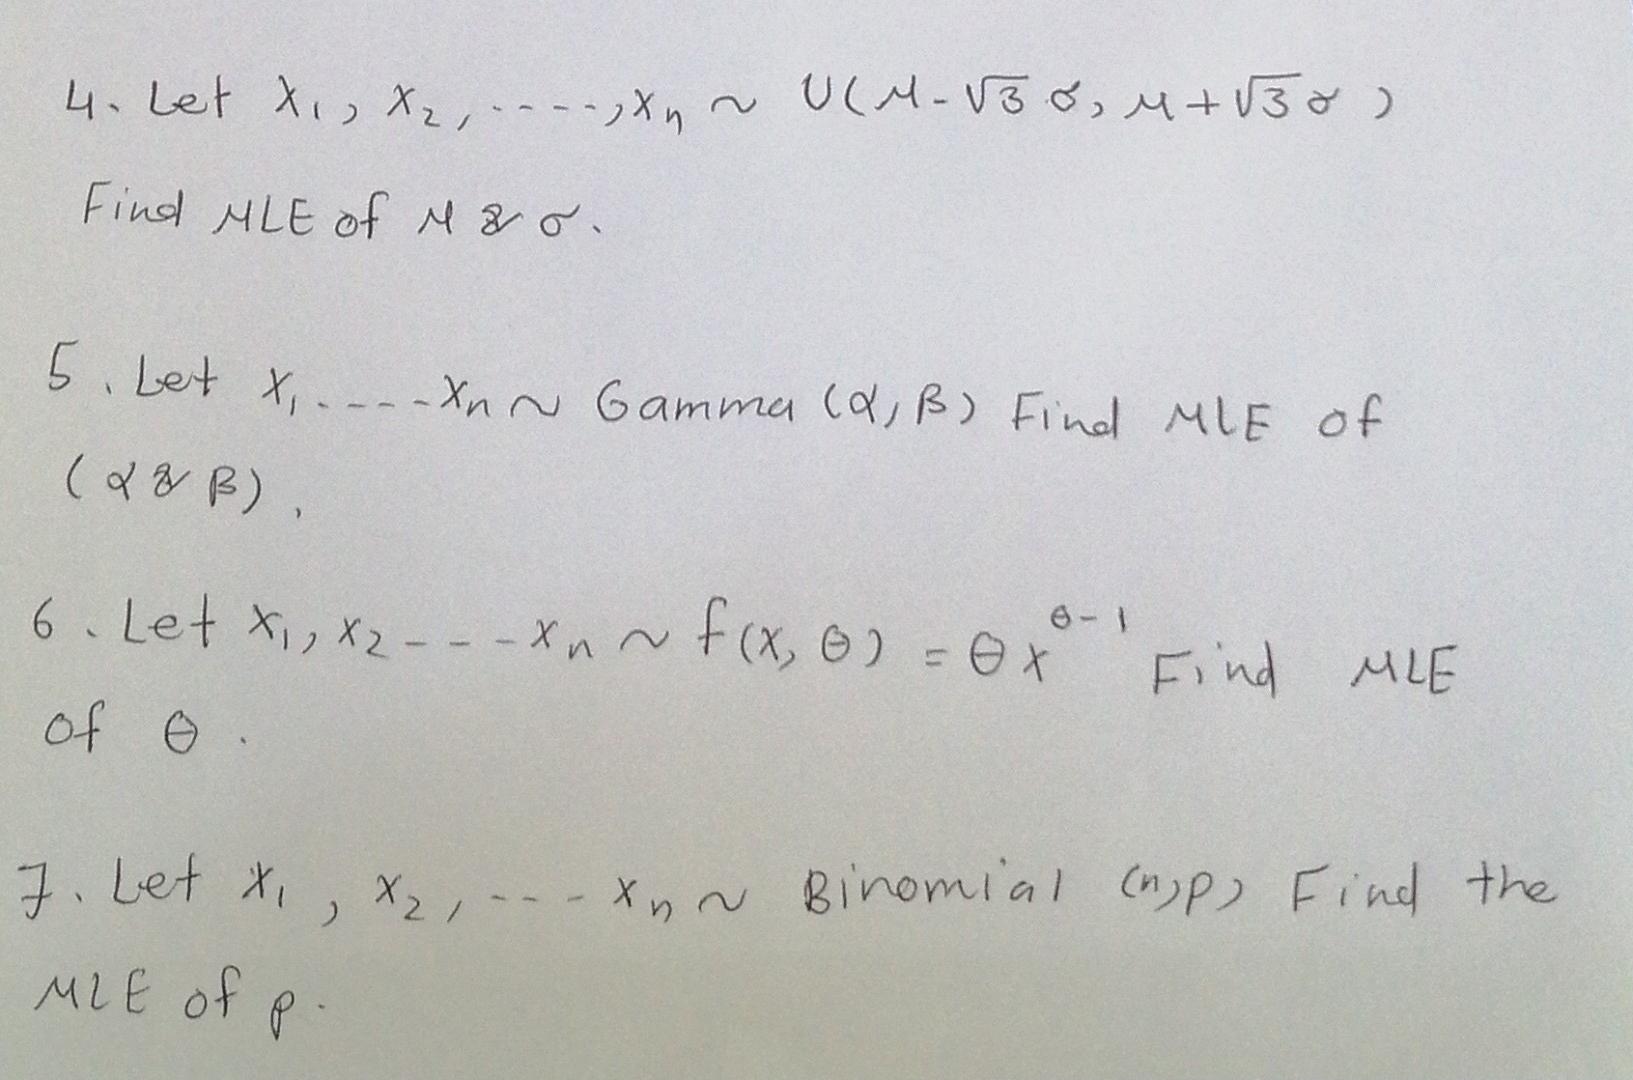 4. Let X₁, X₂, ----, Xₙ ~ U(μ-√3 σ, μ+√3 σ)
Find MLE of μ & σ.
5. Let X₁, ---- Xₙ ~ Gamma (α, β) Find MLE of
(α & β).
6. Let X₁, X₂ --- Xₙ ~ f(x, θ) = θx^(θ-1) Find MLE
of θ.
7. Let X₁, X₂, --- Xₙ ~ Binomial (n, p) Find the
MLE of p.